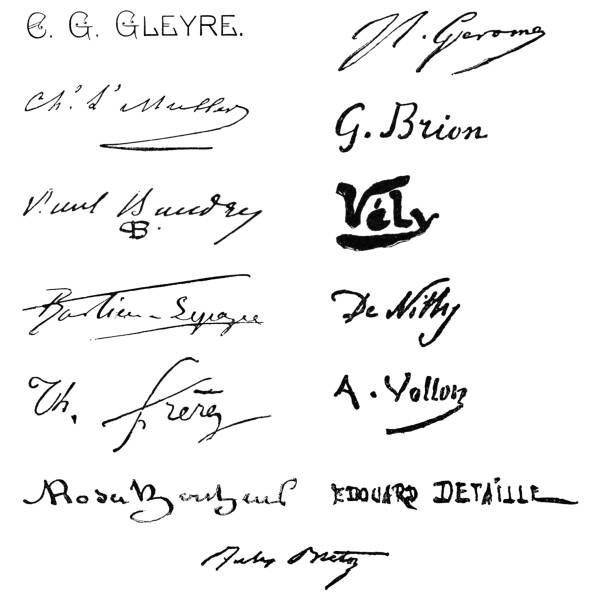 C. G. GLEYRE.
J L. Gerome
Chs. L. Muller
G. Brion
Paul Baudry
B
Vély
Bastien-Lepage
De Nitty
Th. Frère
A. Vollon
Rosa Bonheur
EDOUARD DETAILLE
Jules Breton